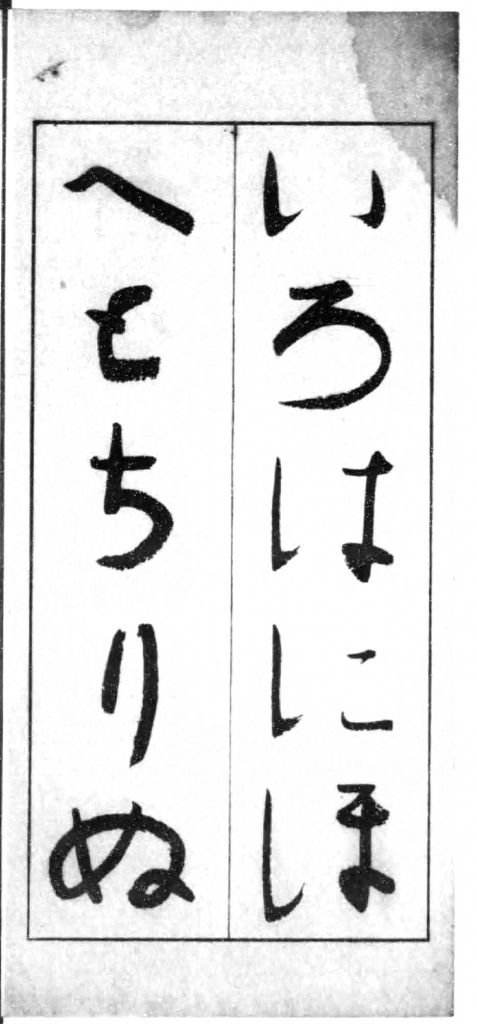 いろはにほ
へとちりぬ